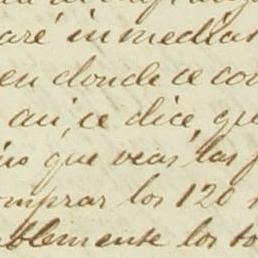 aré inmediat
en donde se co
asi, se dice, que
que veas, las
omprar los 120
blemente los to